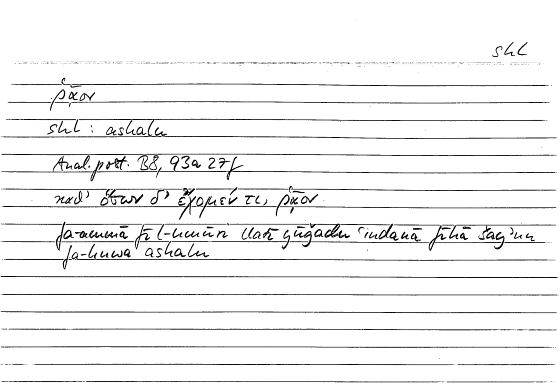 shl
ῥᾷον
shl : ashalu
Anal. post. B8, 93a 27f
καθ' ὅσων δ' ἔχομέν τι, ῥᾷον
fa-ammā fī l-umūri llatī yūǧadu ʿindanā fīhā šayʾun
fa-huwa ashalu